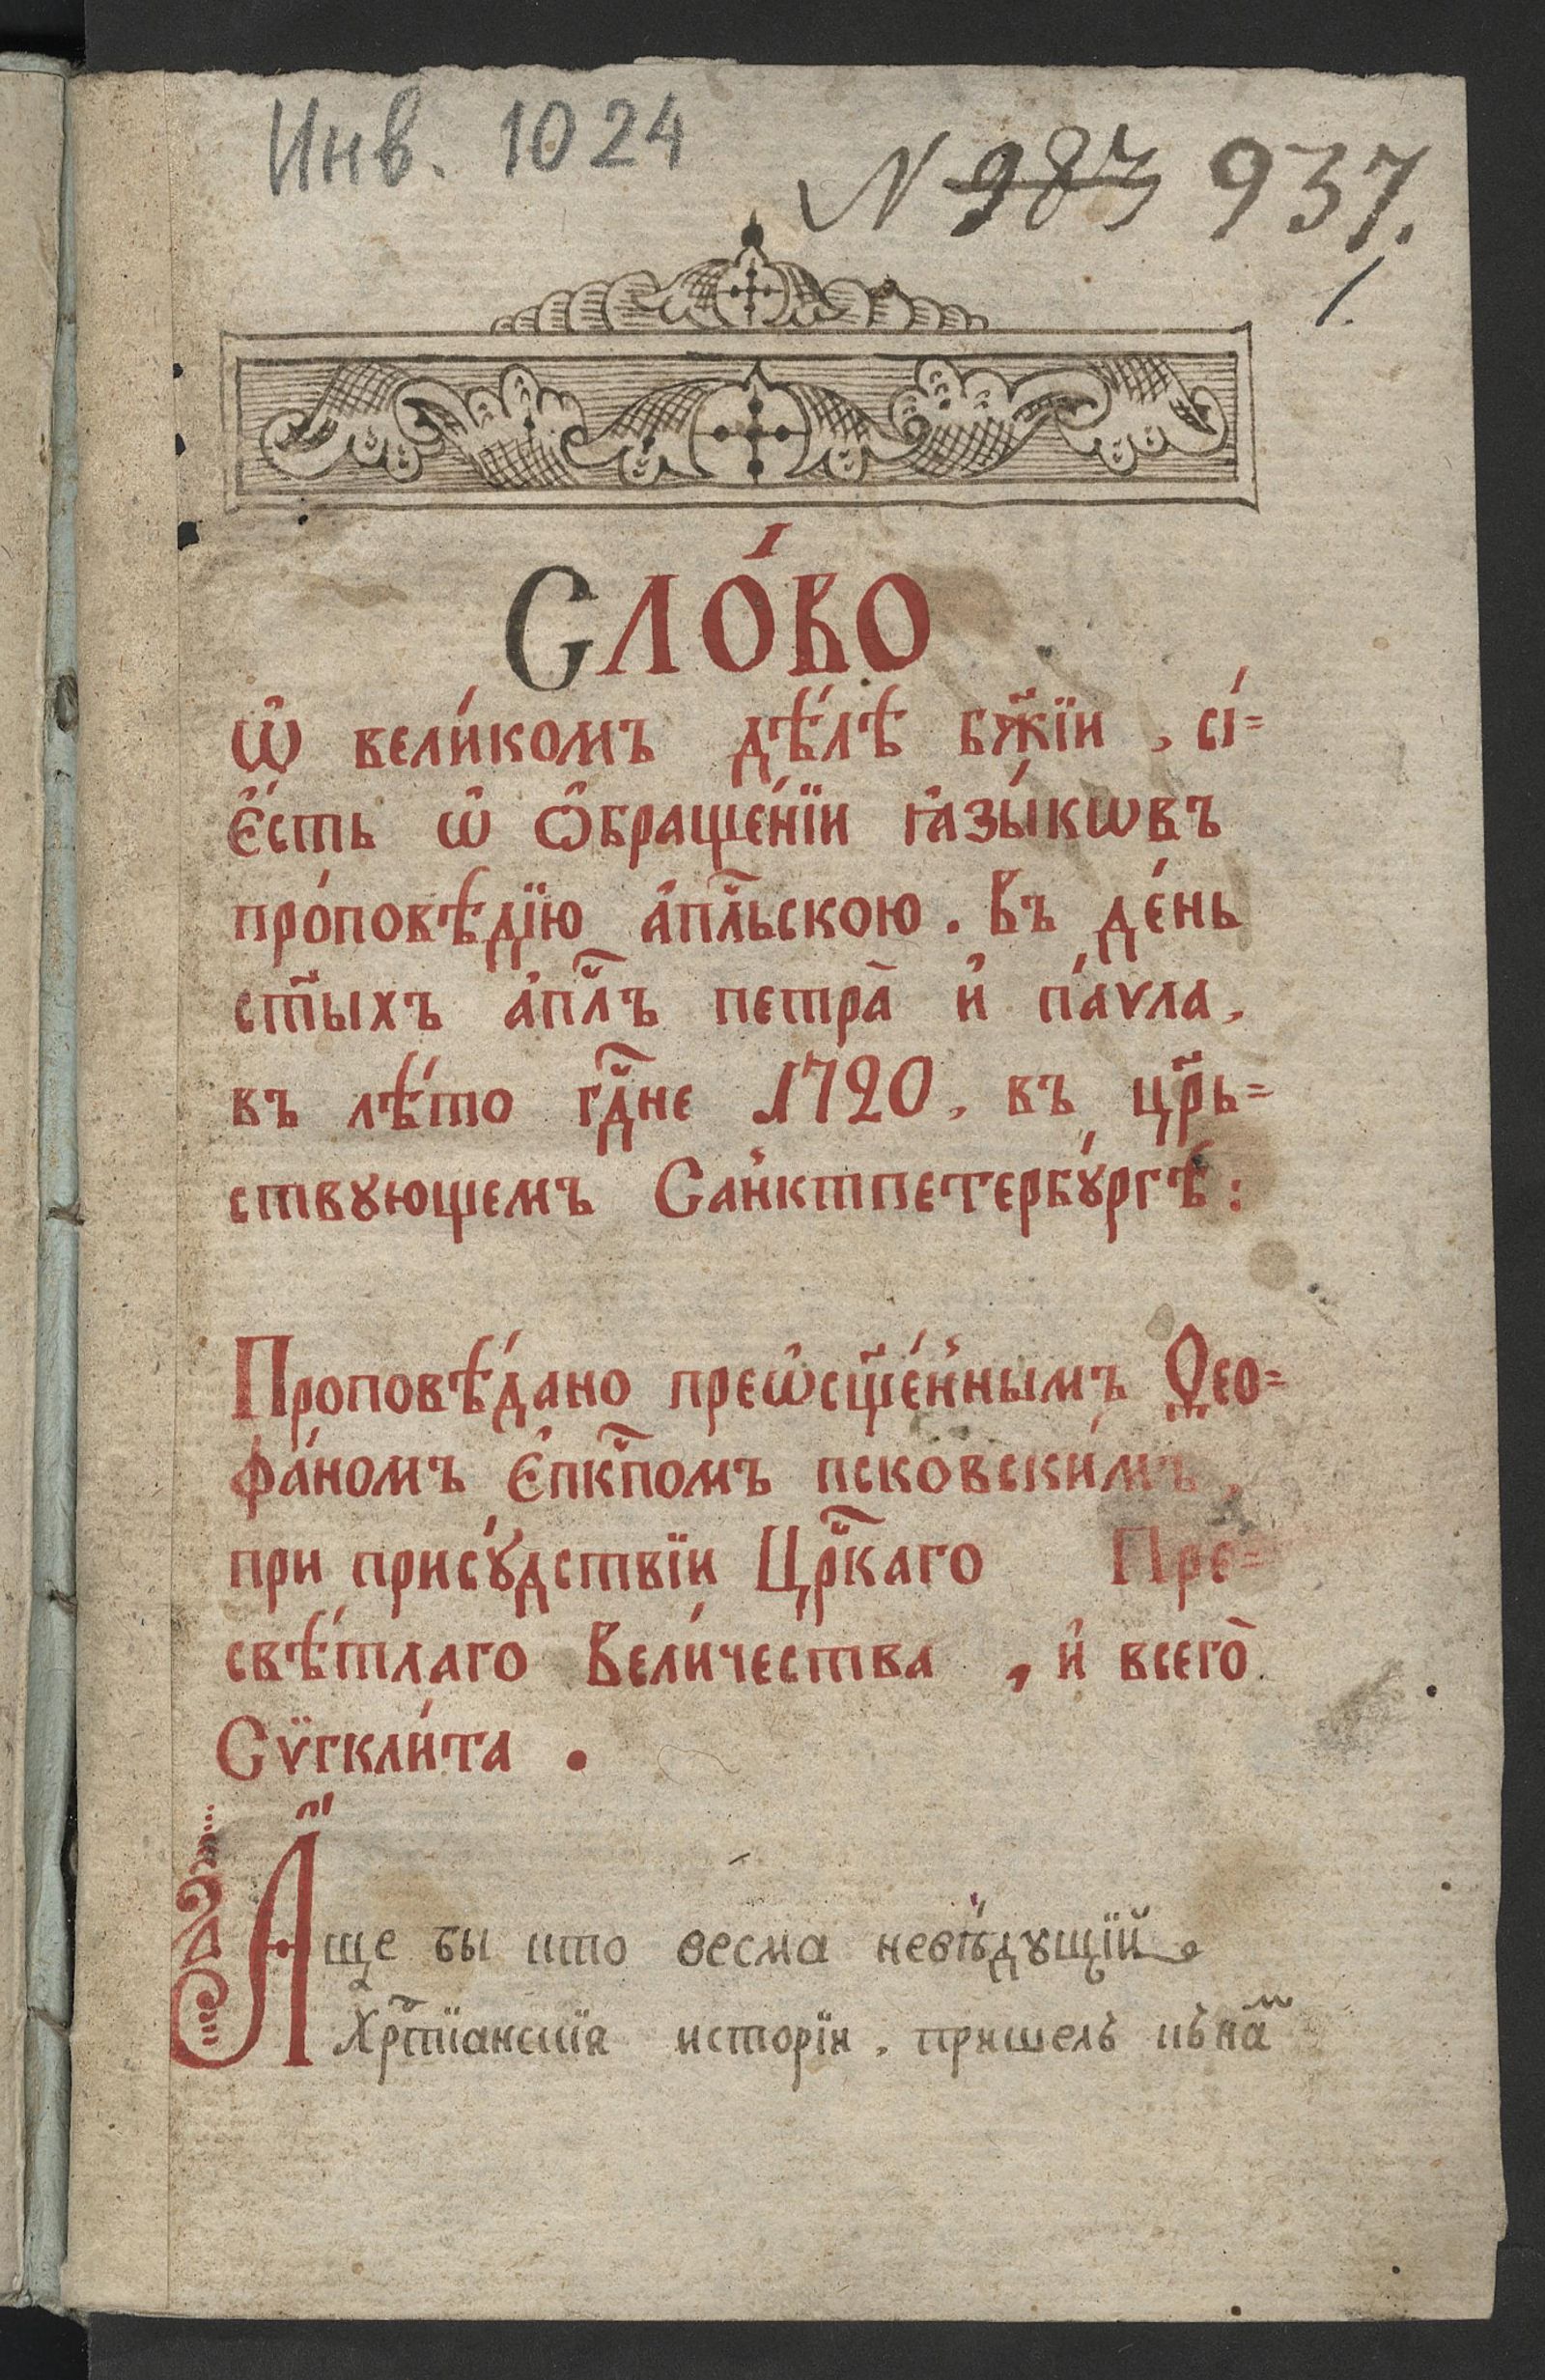 Инв. 1024
N 983 937.
1.
Сло́во
Ѡ҆ вели́комъ дѣ́лѣ бж҃їи , сі́=
є҆́сть ѡ҆ ѻ҆браще́нїи ꙗ҆зы́кѡвъ
про́повѣдїю а҆пⷭ҇льскою . Въ де́нь
ст҃ы́хъ а҆пⷭ҇лъ петра̀ и҆ па́ѵла ,
въ лѣ́то гдⷭ҇не 1720 , въ цр҃ь=
ствꙋющемъ Санктпетербꙋ́ргѣ :
Проповѣ́дано преѡ҆сщ҃е́ннымъ Ѳео=
фа́номъ є҆пкⷭ҇помъ псковски́мъ ,
при присꙋ́дствїи Црⷭ҇каго Пре=
свѣ́тлаго Вели́чества , и҆ всего̀
Сѵ̈гкли́та .
Аще бы кто весма невѣ́дꙋщїй
Хрⷭ҇тїанскїѧ исторїи , пришелъ къ на́мъ